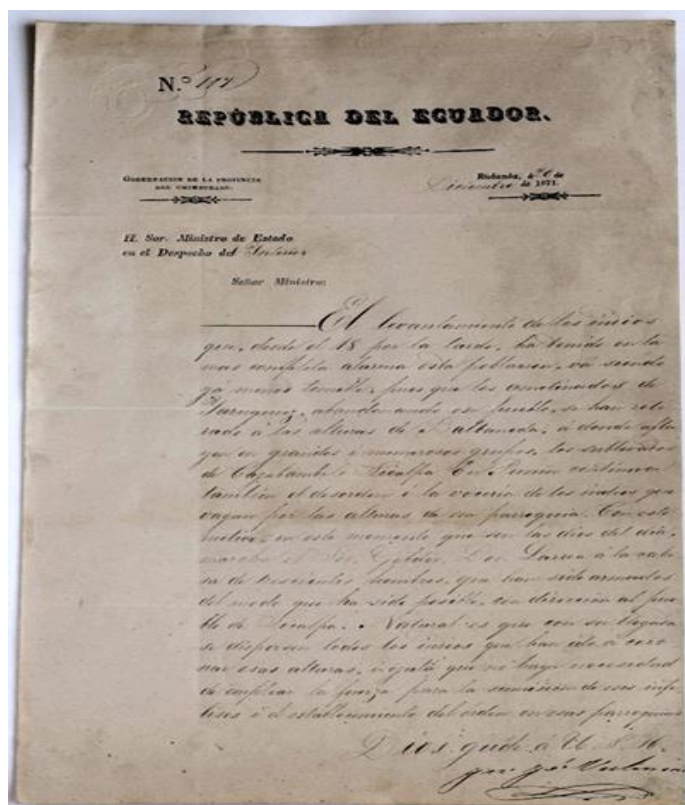 N.º 197
REPÚBLICA DEL ECUADOR.
GOBERNACION DE LA PROVINCIA
DEL CHIMBORAZO.
Riobamba, á 20 de
Diciembre de 1871.
H. Sor. Ministro de Estado
en el Despacho del Interior
Señor Ministro:
El levantamiento de los indios
que, desde el 18 por la tarde, ha tenido en la
mas completa alarma esta poblacion, vá siendo
yá menos temible, pues que los amotinados de
Yaruquiez, abandonando ese pueblo, se han reti-
rado á las alturas de á donde aflu-
yen en grandes i numerosos grupos, los sublevados
de Cajabamba i Sicalpa. En Punin continuan
tambien el desorden i la voceria de los indios que
vagan por las alturas de esa parroquia. Con este
motivo, en este momento que son las dies del dia,
marcha el Sor. Dor. Larrea á la cabe-
sa de trescientos hombres, que han sido armados
del modo que ha sido posible, con direccion al pue-
blo de Sicalpa. Natural es que con su llegada
se dispersen todos los indios que han ido á coro-
nar esas alturas, i ojalá que no haya necesidad
de emplear la fuerza para la sumision de esos infe-
lises i el establecimiento del órden en esas parroquias
Dios gude. á U. S. H.